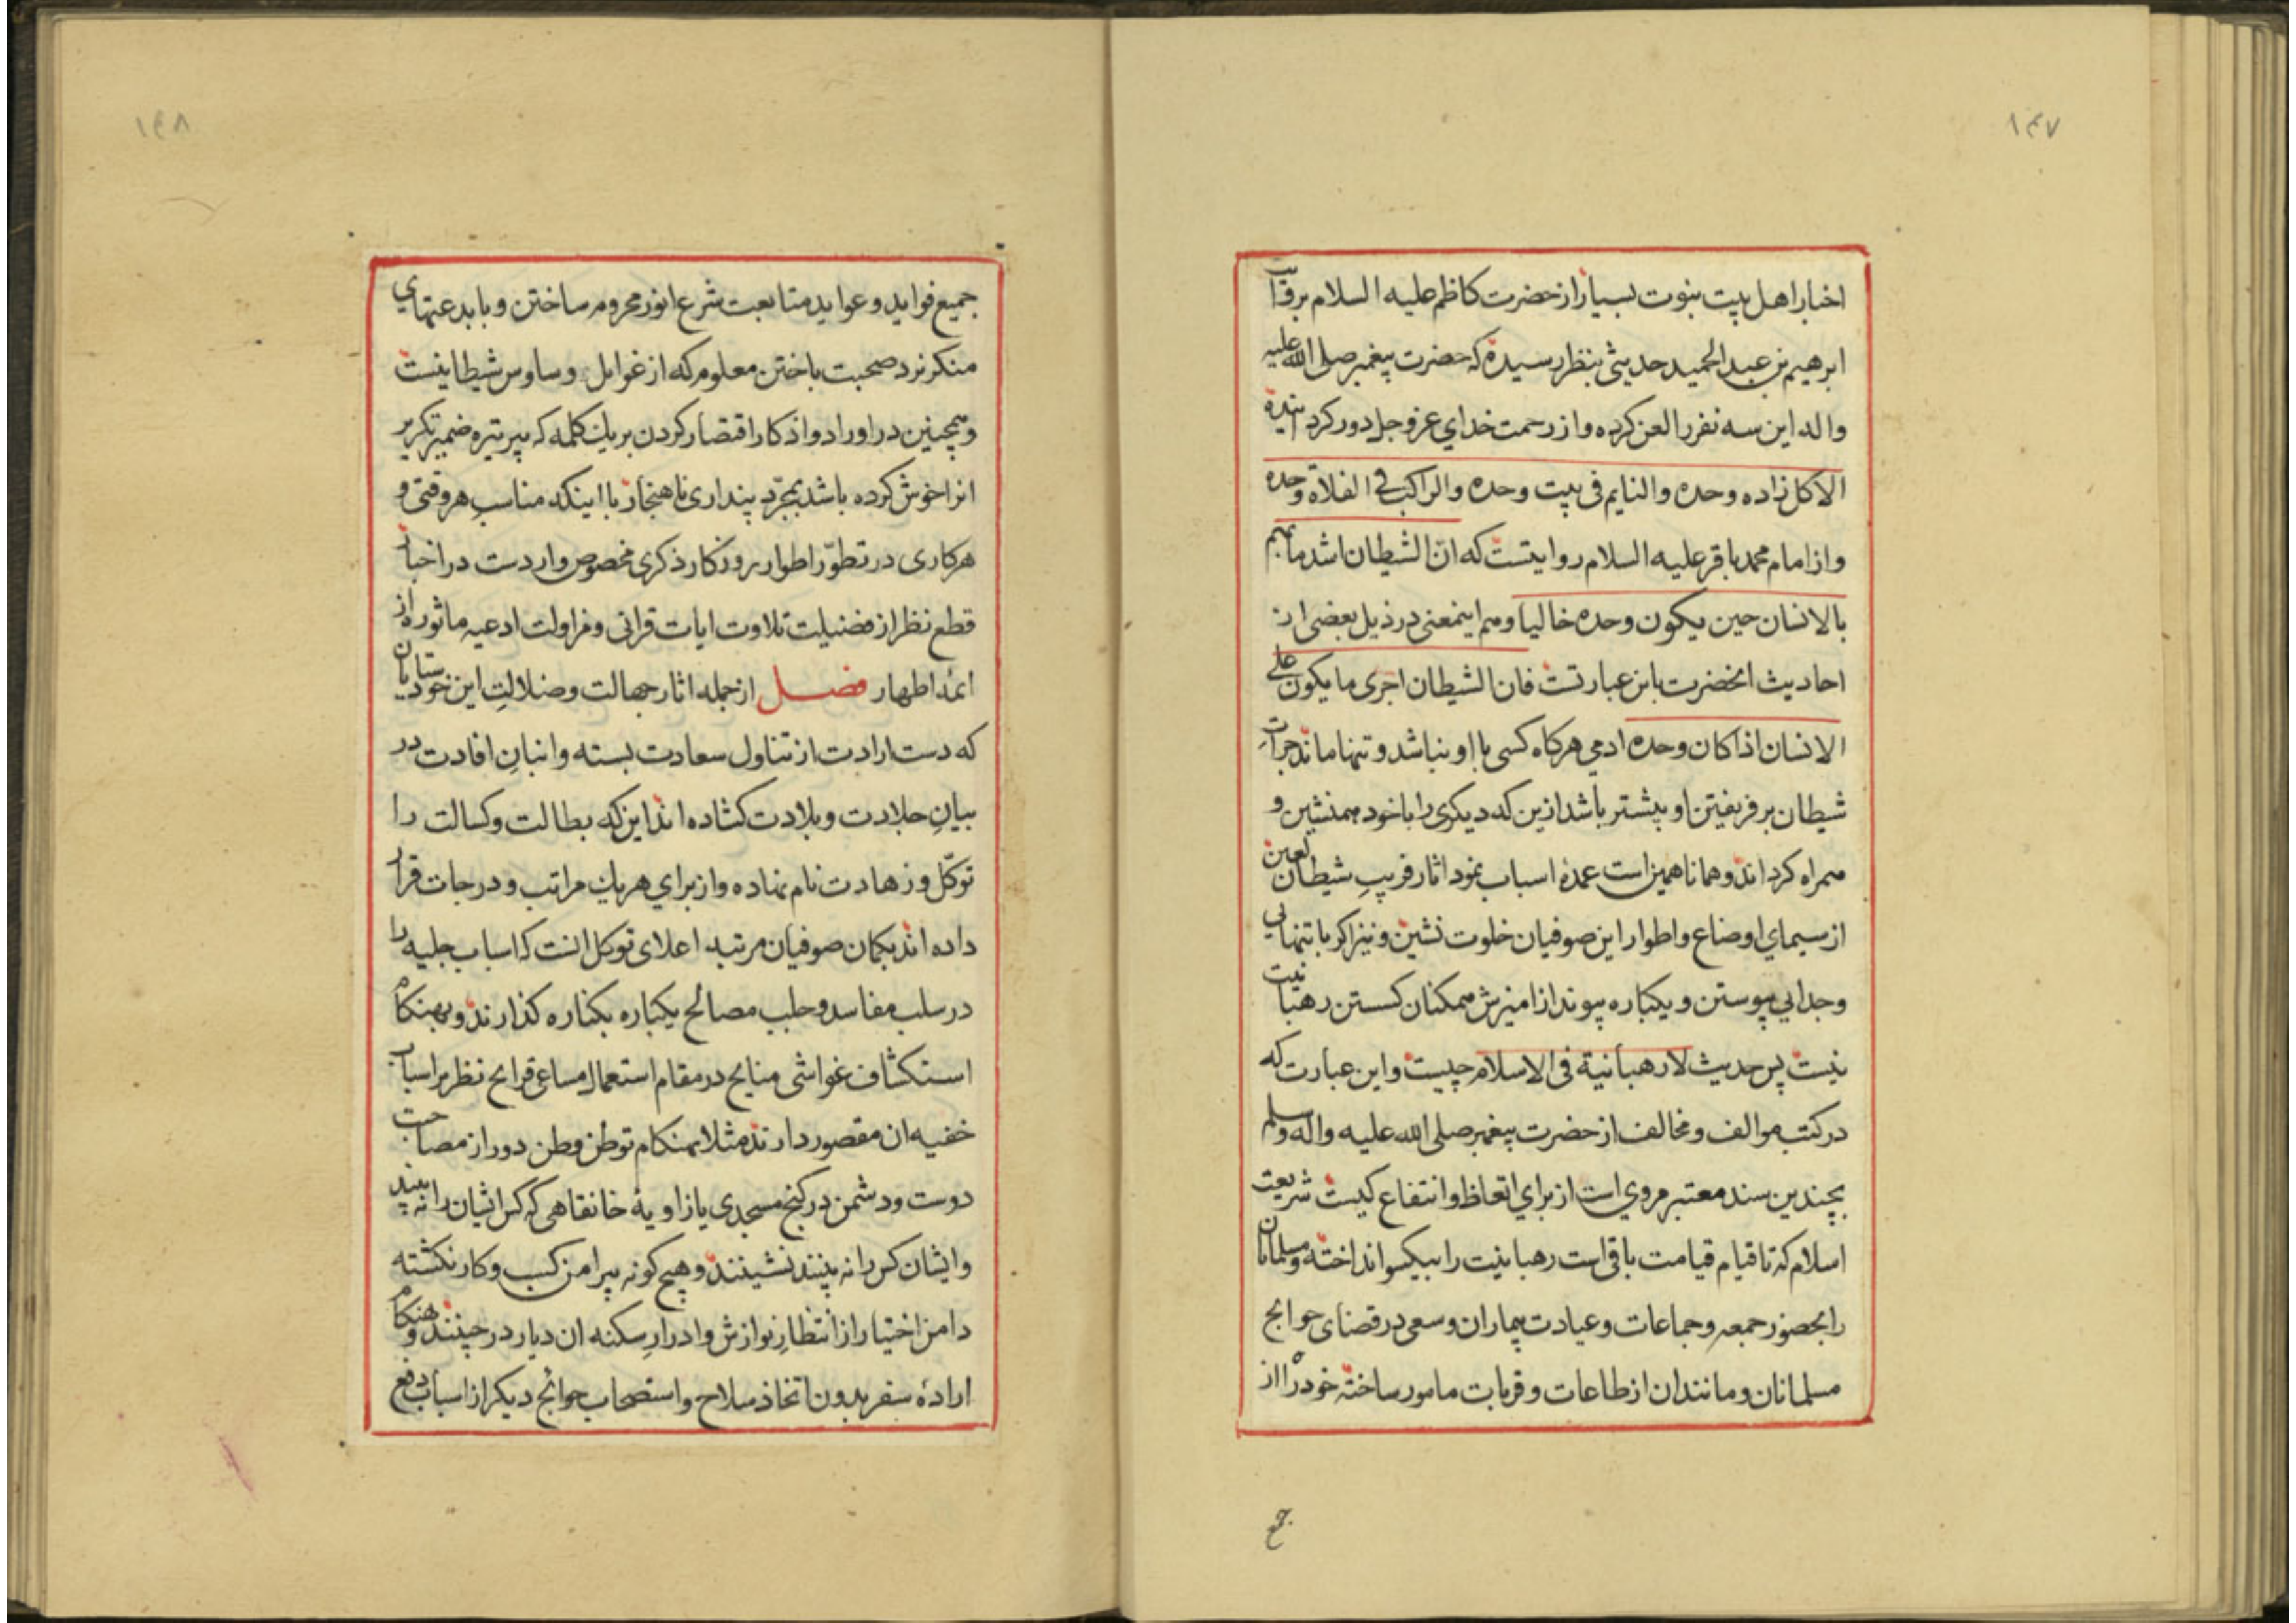 ۱۴۷
اخبار اهل بیت نبوت بسیار از حضرت کاظم علیه السلام بروایت
ابرهیم بن عبد الحمید حدیثی بنظر رسیده که حضرت پیغمبر صلی الله علیه
واله این سه نفر را لعن کرده و از رحمت خدای عز و جل دور کرد
الآکل زاده وحده والنایم فی بیت وحده والراکب فی الفلاة وحده
و از امام محمد باقر علیه السلام روایتست که انّ الشیطان اشد ما یهم
بالانسان حین یکون وحده خالیا و هم اینمعنی در ذیل بعضی از
احادیث انحضرت باین عبارتست فان الشیطان اجری ما یکون علی
الانسان اذا کان وحده ادمی هرکاه کسی با او نباشد و تنها ماند جرات
شیطان بر فریفتن او بیشتر باشد ازین که دیکری را با خود همنشین و
همراه کرداند و همانا همین است عمدهٔ اسباب نمود اثار فریب شیطان لعین
از سیمای اوضاع و اطوار این صوفیان خلوت نشین و نیز اکر با تنهایی
و جدایی پیوستن و یکباره پیوند از امیزش همکنان کسستن رهبانیت
نیست پس حدیث لا رهبانیة فی الاسلام چیست و این عبارت که
در کتب موالف و مخالف از حضرت پیغمبر صلی الله علیه واله وسلم
بچندین سند معتبر مروی است از برای اتعاظ و انتفاع کیست شریعت
اسلام که تا قیام قیامت باقی است رهبانیت را بیکسو انداخته و مسلمانان
را بحضور جمعه و جماعات و عیادت بیماران و سعی در قضای حوایج
مسلمانان و مانند ان از طاعات و قربات مامور ساخته خود را از
جمیع
۱۴۸
جمیع فواید و عواید متابعت شرع انور محروم ساختن و با بدعتهای
منکر نرد صحبت باختن معلوم که از غوایل وساوس شیطانیست
و همچنین در اوراد و اذکار اقتصار کردن بر یک کلمه که پیر تیره ضمیر تکریر
انرا خوش کرده باشد بمجرّد پنداری ناهنجار با اینکه مناسب هر وقتی و
هر کاری در تطوّر اطوار روزکار ذکری مخصوص واردست در اخبار
قطع نظر از فضیلت تلاوت ایات قرانی و مزاولت ادعیه ماثوره از
ائمهٔ اطهار فصل از جمله اثار جهالت و ضلالتِ این خودستایان
که دست ارادت از تناول سعادت بسته و انبانِ افادت در
بیانِ جلادت و بلادت کشاده اند این که بطالت و کسالت را
توکّل و زهادت نام نهاده و از برای هریک مراتب و درجات قرار
داده اند بکمان صوفیان مرتبهٔ اعلای توکل انست که اسباب جلیه را
در سلب مفاسد و جلب مصالح یکباره بکناره کذارند و بهنکام
استکشاف غواشی منایح در مقام استعمال مساعی قرایح نظر بر اسباب
خفیه ان مقصور دارند مثلا بهنکام توطن وطن دور از مصاحبت
دوست و دشمن در کنج مسجدی یا زاویهٔ خانقاهی که کس ایشان را نه بیند
و ایشان کس را نه بینند نشینند و هیچ کونه پیرامن کسب و کار نکشته
دامن اختیار از انتظارِ نوازش و ادرارِ سکنه ان دیار درچینند و هنکام
ارادهٔ سفر بدون اتخاذ سلاح و استصحاب حوائج دیکر از اسباب دفع